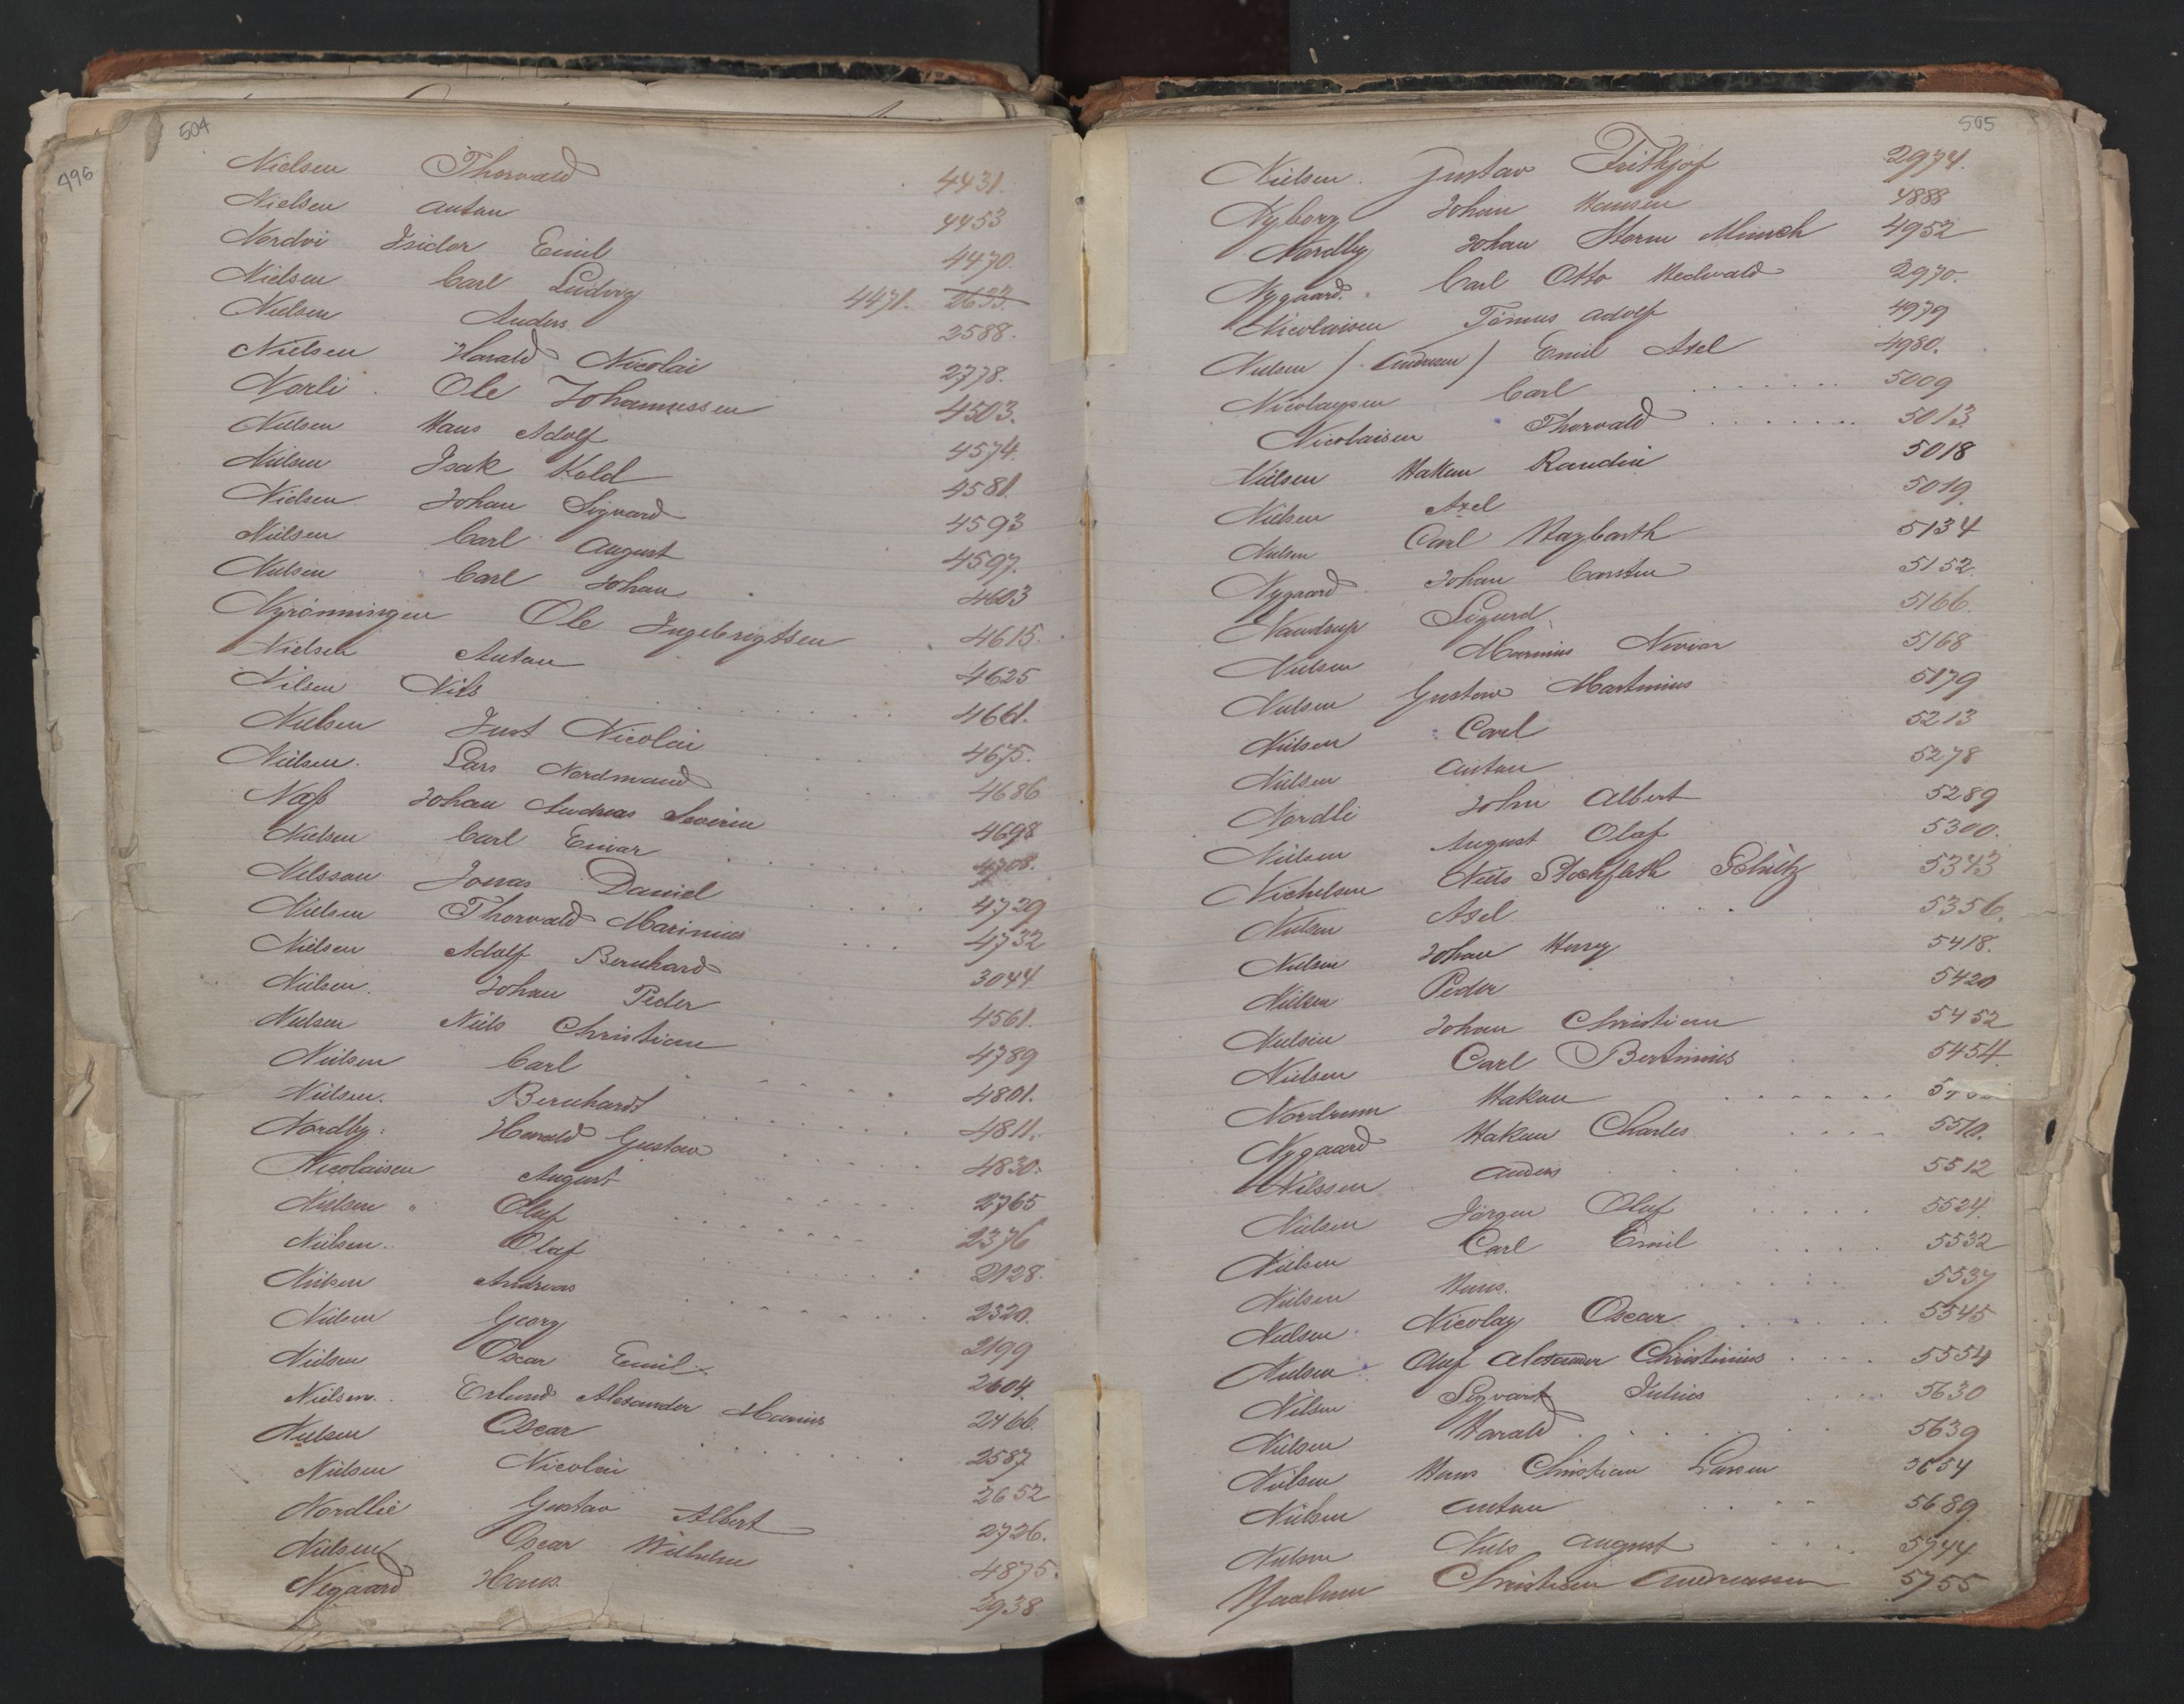 504
496
Nielsen Thorvald 4431.
Nielsen Anton 4453
Nordvi Isidor Emil 4470.
Nielsen Carl Ludvig 4471. 2633.
Nielsen Anders 2588.
Nielsen Harald Nicolai 2778.
Norli Ole Johannessen 4503.
Nielsen Hans Adolf 4574.
Nielsen Isak Hold 4581.
Nielsen Johan Sigvard 4593
Nielsen Carl August 4597.
Nielsen Carl Johan 4603
Nyrönningen Ole Ingebrigtsen 4615.
Nielsen Anton 4625
Nilsen Nils 4661.
Nielsen Just Nicolai 4675.
Nielsen. Lars Nordmand 4686
Næss Johan Andreas Severin 4698
Nielsen Carl Einar 4708.
Nilsson Jonas Daniel 4729
Nielsen Thorvald Marinius 4732
Nielsen Adolf Bernhard 3044
Nielsen. Johan Peder 4561.
Nielsen Niels Christian 4789
Nielsen Carl 4801.
Nielsen. Bernhardt 4811.
Nordby. Harald Gustav 4830.
Nicolaisen August 2765
Nielsen Oluf 2376
Nielsen. Olaf 2128.
Nielsen Andreas 2320.
Nielsen Georg 2199
Nielsen Oscar Emil 2604.
Nielsen. Erlund Alexander Marius 2466.
Nielsen Oscar 2587
Nielsen Nicolai 2652
Nordlie Gustav Albert 2726.
Nielsen Oscar Wilhelm 4875.
Nygaard Hans. 2938
505
Nielsen. Gustav Frithjof 2974.
Nyborg Johan Hansen 4888
Nordby Johan Storm Munch 4952
Nygaard. Carl Otto Hedvald 2970.
Nicolaisen Tömus Adolf 4979
Nielsen / Andresen / Emil Axel 4980.
Nicolaysen Carl 5009
Nicolaisen Thorvald 5013.
Nielsen Hakon Randin 5018
Nielsen Axel 5019.
Nielsen Carl Haybarth 5134
Nygaard Johan Carsten 5152.
Naudrup Sigurd 5166.
Nielsen Marinius 5168
Nielsen Gustav Martinius 5179
Nielsen Carl 5213
Nielsen Anton 5278
Nordli John Albert 5289
Nielsen August Olaf 5300.
Nichelsen Niels Stockfleth Schultz 5343
Nielsen Axel 5356.
Nielsen Johan Henry 5418.
Nielsen Peder 5420
Nielsen Johan Christian 5452
Nielsen Carl Bertinius 5454.
Nordrum Hakon
Nygaard Hakon Charles 5510.
Nilssen Anders 5512
Nielsen Jörgen Oluf 5524.
Nielsen Carl Emil 5532
Nielsen Hans. 5537
Nielsen Nicolay Oscar 5545
Nielsen Oluf Alexander Christinius 5554
Nilsen Sigvart Julius 5630
Nielsen Harald 5639
Nielsen Hans Christian Larsen 5654
Nielsen Anton 5689
Nielsen Niels August 5744
Christian Andreassen 5755